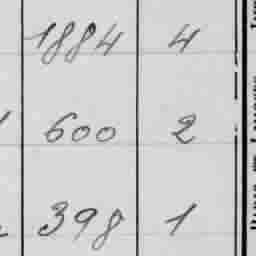 1884 4
600 2
398 1